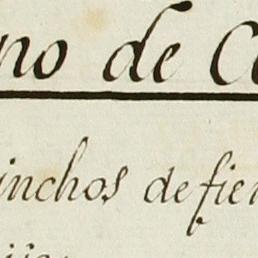 no de C
inchos de fier